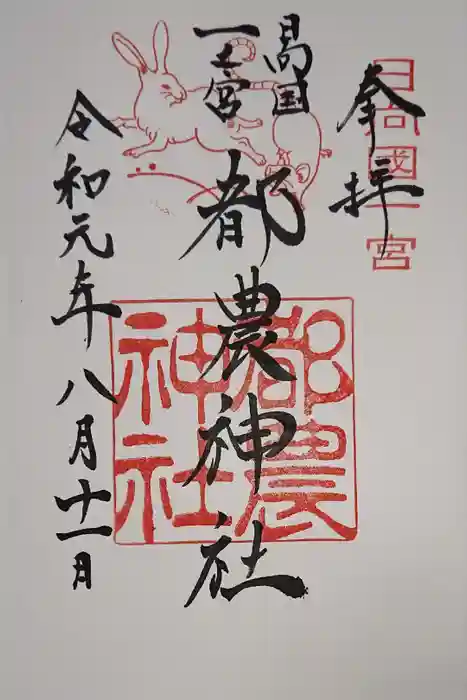 日向國一宮
奉拝
日向国
一之宮
都農神社
都農
神社
令和元年八月十一日